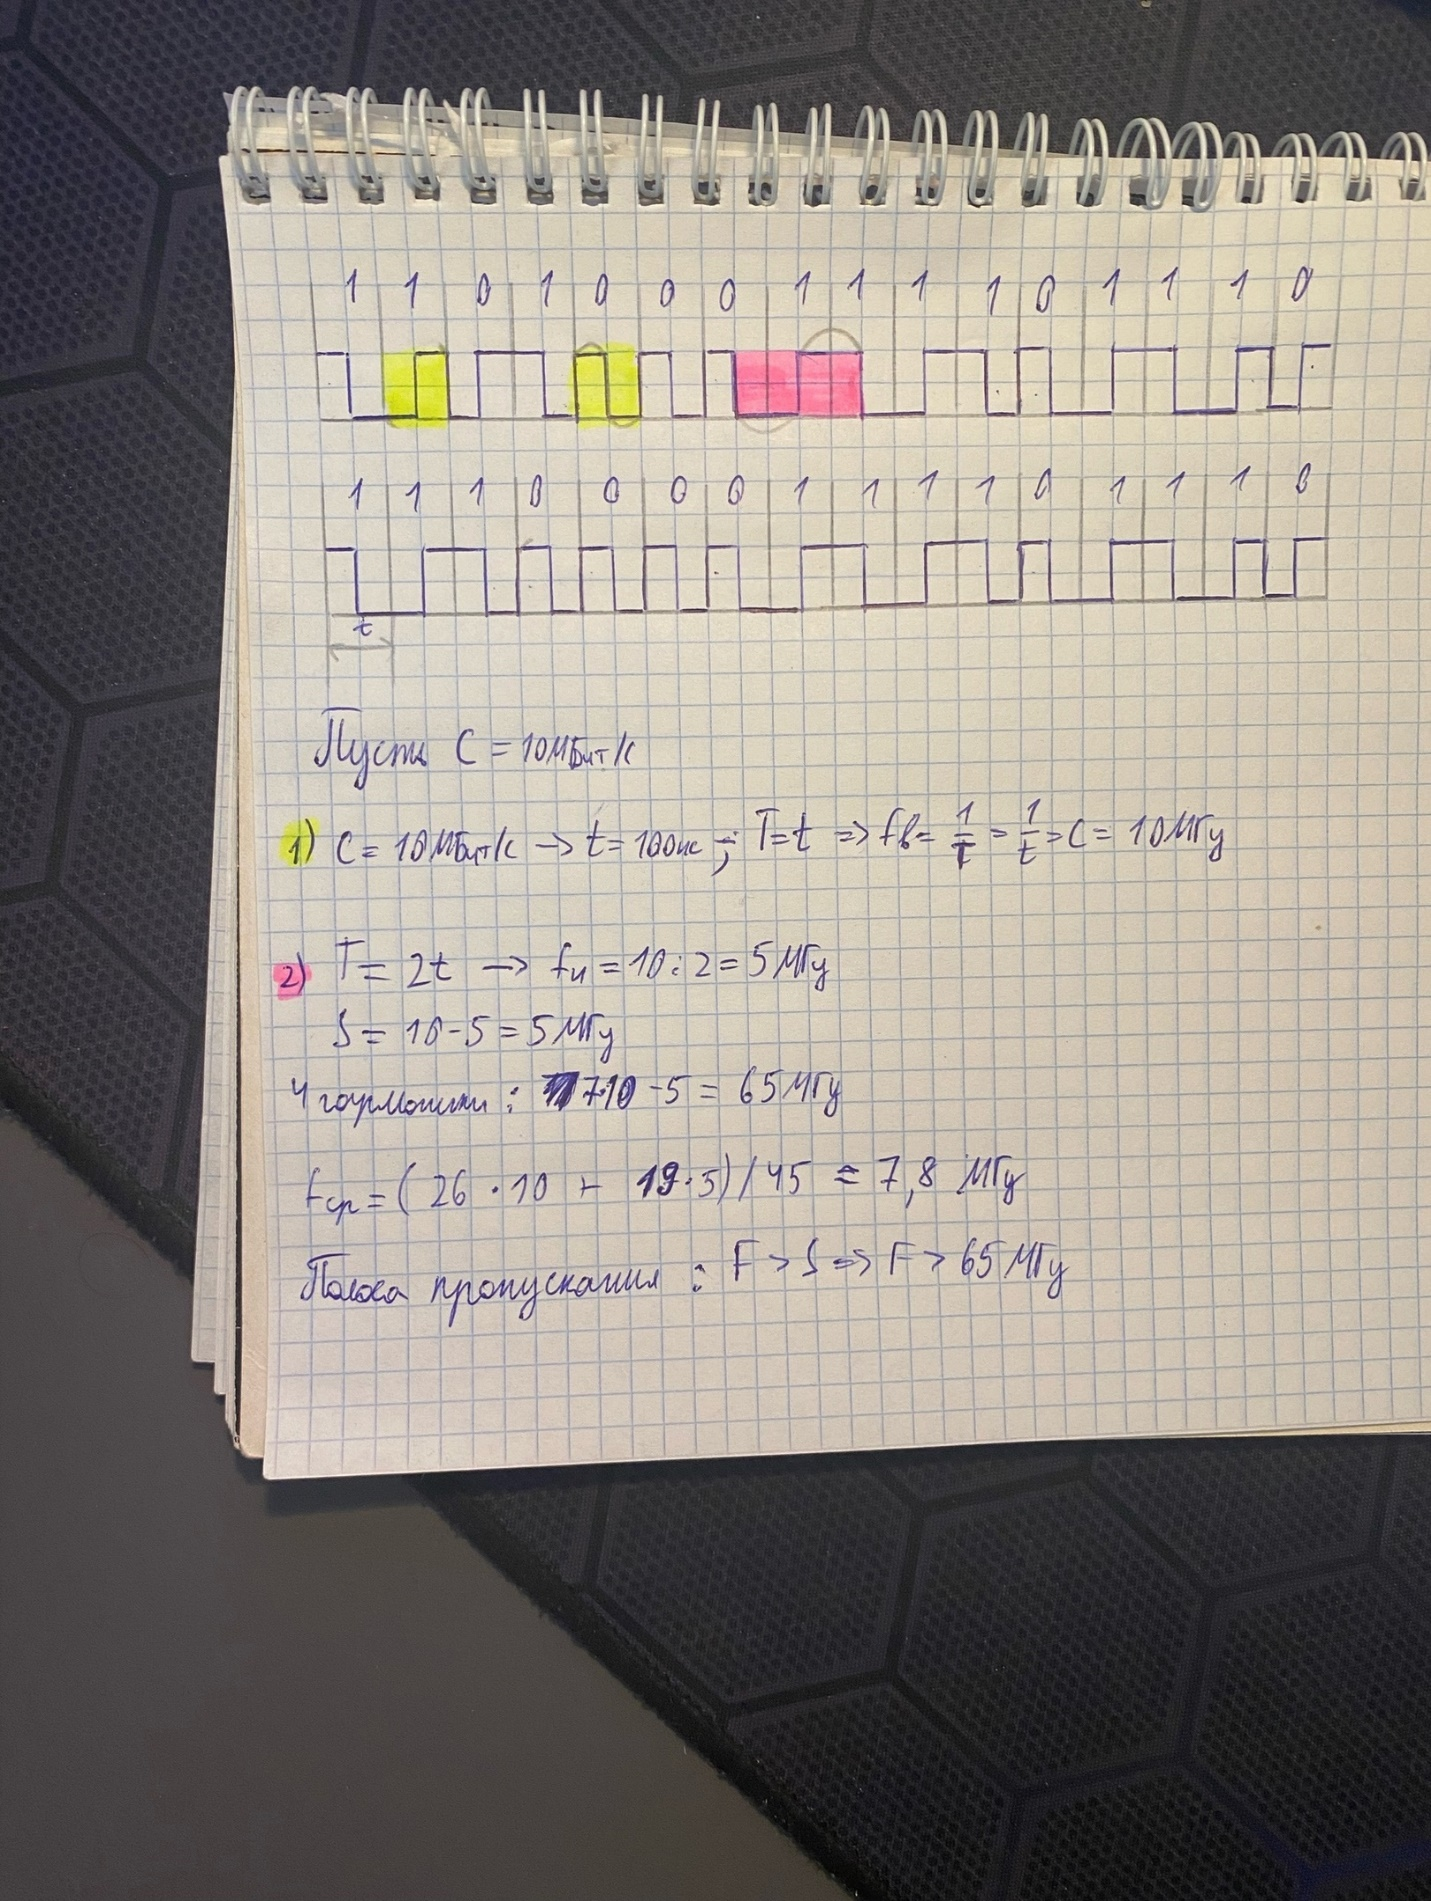 1 1 0 1 0 0 0 1 1 1 1 0 1 1 1 0
1 1 1 0 0 0 0 1 1 1 1 0 1 1 1 0
t
Пусть C = 10 Мбит/с
1) C = 10 Мбит/с → t = 100нс ; T = t => fв = 1/T = 1/t = C = 10 МГц
2) T = 2t → fн = 10 : 2 = 5 МГц
S = 10 - 5 = 5 МГц
4 гармоники : 7·10 - 5 = 65 МГц
fср = ( 26 · 10 + 19 · 5) / 45 = 7,8 МГц
Полоса пропускания : F > S => F > 65 МГц